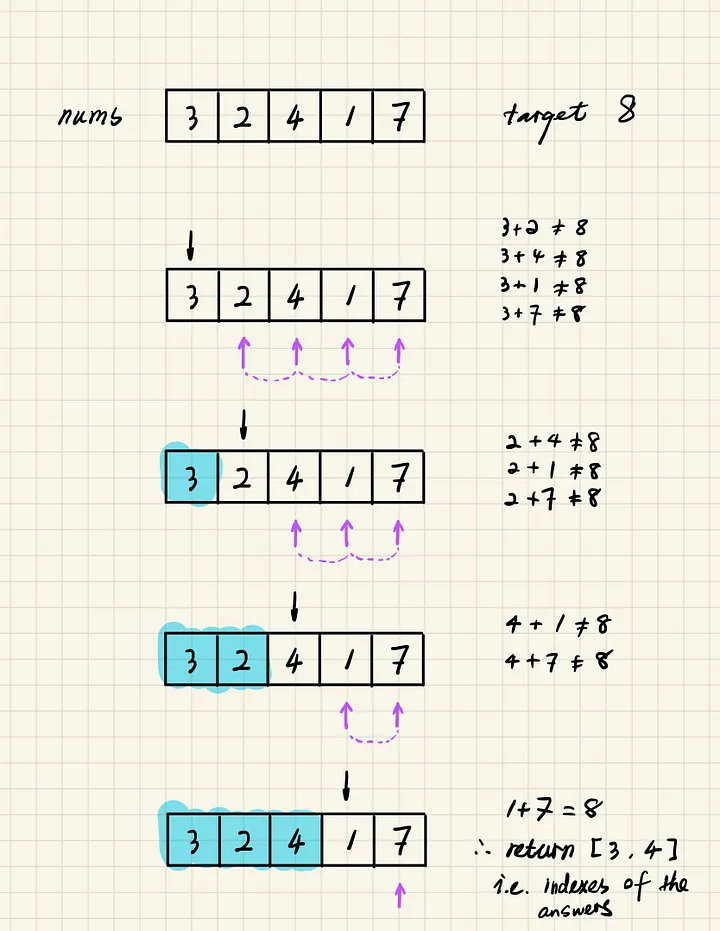 nums 3 2 4 1 7 target 8
3+2 ≠ 8
3+4 ≠ 8
3+1 ≠ 8
3+7 ≠ 8
3 2 4 1 7
2+4 ≠ 8
2+1 ≠ 8
2+7 ≠ 8
3 2 4 1 7
4+1 ≠ 8
4+7 ≠ 8
3 2 4 1 7
1+7 = 8
3 2 4 1 7
∴ return [3, 4]
i.e. indexes of the
answers